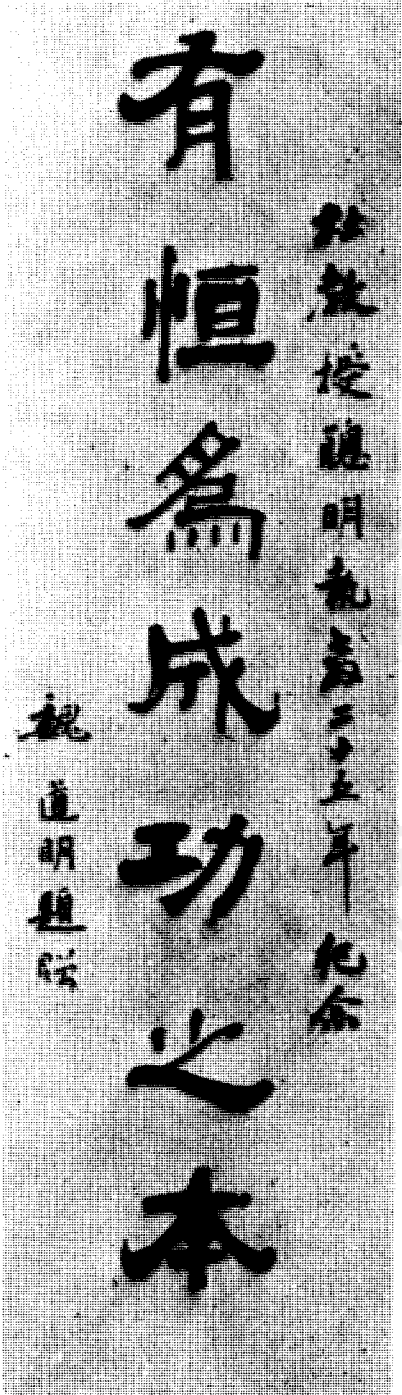 杜教授聰明執教二十五年紀念
有恒為成功之本
魏道明題贈